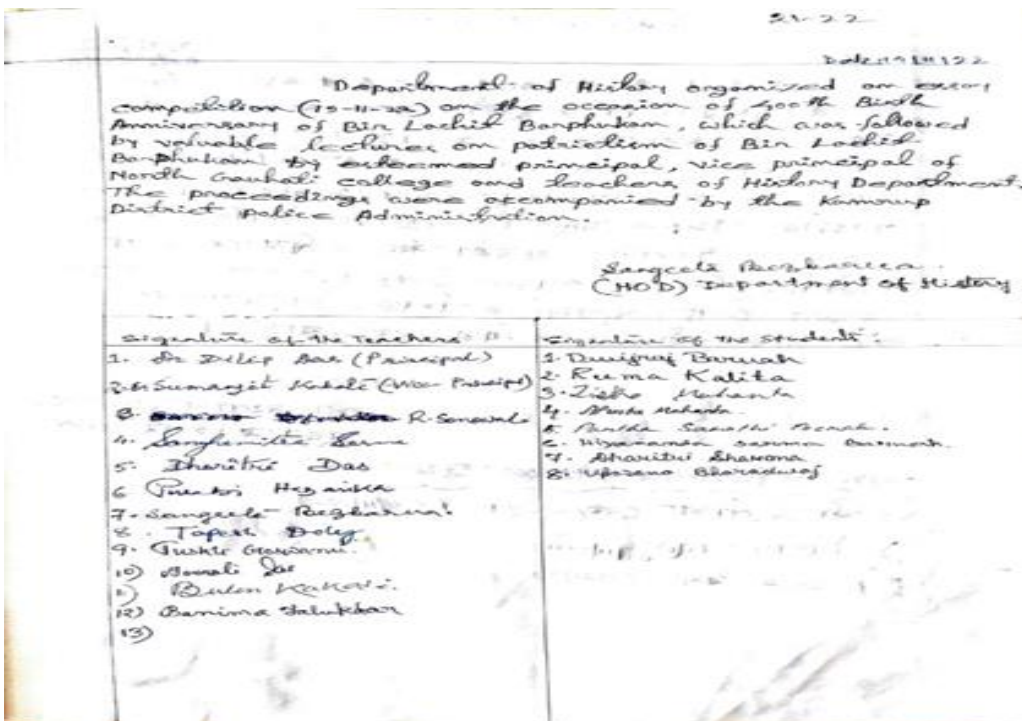 21-22
Date: 19/11/22
Department of History organized an essay
competition (19-11-22) on the occasion of 400th Birth
Anniversary of Bir Lachit Barphukan, which was followed
by valuable lectures on patriotism of Bir Lachit
Barphukan by esteemed principal, vice principal of
North Gauhati college and teachers of History Department.
The proceedings were accompanied by the Kamrup
District police Administration.
Sangeeta
(HOD) Department of History
Signature of the Teachers:
1. Dr Dilip Das (Principal)
2. Sumanjit Kalita (Vice Principal)
3. R. Sonowal
4. Sanghamitra Sarma
5. Dharitri Das
6 Hazarika
7. Sangeeta
8. Tapesh Doley
9. Goswami.
10) Das
11) Kakoti.
12) Banima Talukdar
13)
Signature of the Students:
1. Dwigraj Baruah
2. Reema Kalita
3. Mahanta
4. Mahanta
5. Partha Sarathi
6. Sarma
7. Dharitri Sharma
8. Upasana Bharadwaj